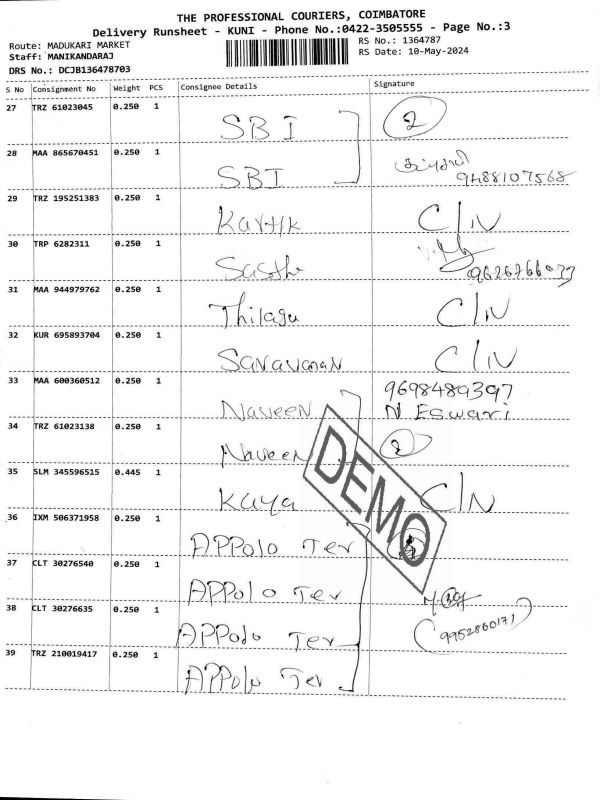 THE PROFESSIONAL COURIERS, COIMBATORE
Delivery Runsheet - KUNI - Phone No.:0422-3505555 - Page No.:3
Route: MADUKARI MARKET RS No.: 1364787
Staff: MANIKANDARAJ RS Date: 10-May-2024
DRS No.: DCJB136478703
S No Consignment No Weight PCS Consignee Details Signature
27 TRZ 61023045 0.250 1 SBI 2
28 MAA 865670451 0.250 1 SBI 9488107568
29 TRZ 195251383 0.250 1 Karthk C/N
30 TRP 6282311 0.250 1 Sasthi 9626766033
31 MAA 944979762 0.250 1 Thilagu C/N
32 KUR 695893704 0.250 1 Saravanan C/N
33 MAA 600360512 0.250 1 Naveen 9698489397
N Eswari
34 TRZ 61023138 0.250 1 Naveen 2
35 SLM 345596515 0.445 1 Kaya C/N
DEMO
36 IXM 506371958 0.250 1 APPolo Ter
37 CLT 30276540 0.250 1 APPolo Ter
38 CLT 30276635 0.250 1 APPolo Ter 9952860171
39 TRZ 210019417 0.250 1 APPolo Ter